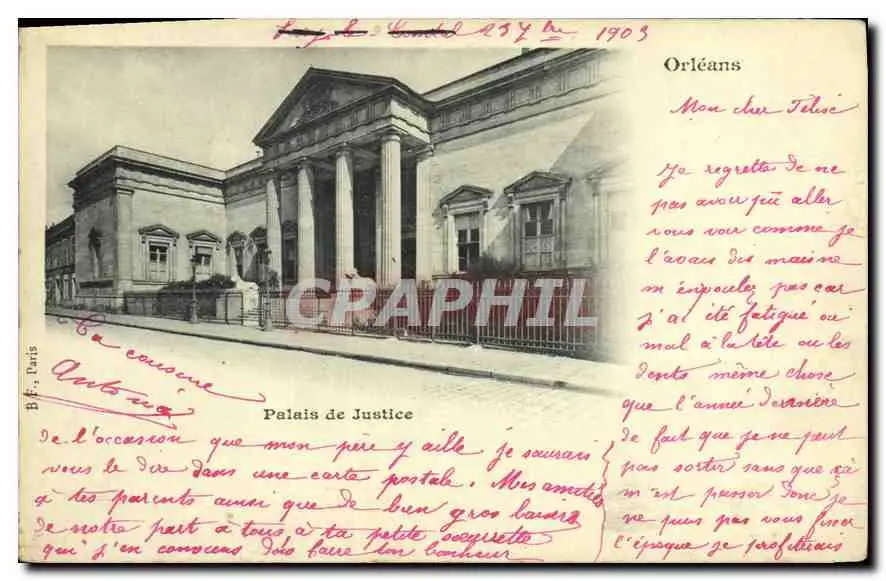 23 7bre 1903
Orléans
Mon cher Félix
Je regrette de ne
pas avoir pu aller
vous voir comme je
l'avais dis mais ne
m'en voulez pas car
j'ai été fatigué ou
mal à la tête ou les
dents même chose
que l'année dernière
de fait que je ne peut
pas sortir sans que ça
m'est passer donc je
ne puis pas vous fixer
l'époque je profiterais
de l'occasion que mon père y aille je saurais
vous le dire dans une carte postale. Mes amitiés
à tes parents ainsi que de bien gros baisers
de notre part à tous à ta petite sœurette
qui j'en conviens dois faire ton bonheur
Ta cousine
Antonia
Palais de Justice
B F., Paris
CPAPHIL